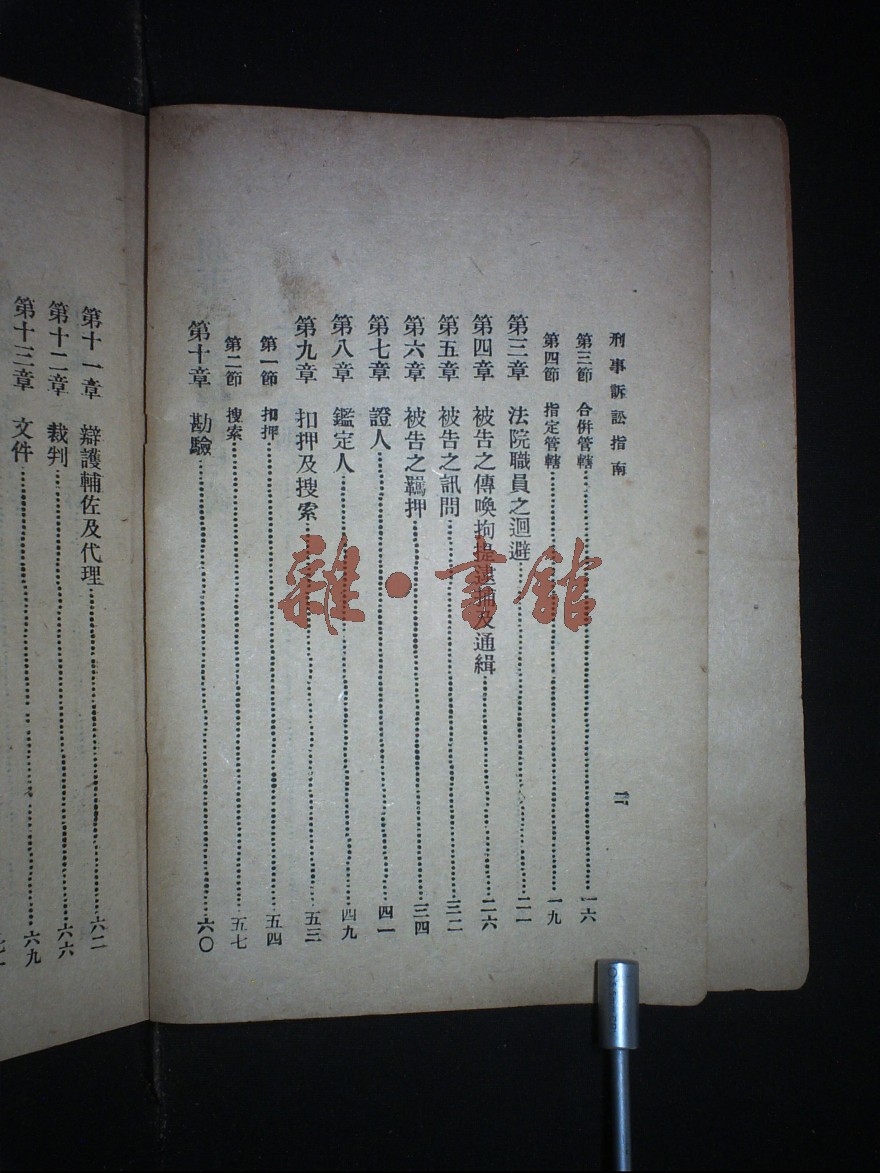 刑事訴訟指南
二
第三節 合併管轄……一六
第四節 指定管轄……一九
第三章 法院職員之迴避……二一
第四章 被告之傳喚拘提逮捕及通緝……二六
第五章 被告之訊問……三二
第六章 被告之羈押……三四
第七章 證人……四一
第八章 鑑定人……四九
第九章 扣押及搜索……五三
第一節 扣押……五四
第二節 搜索……五七
第十章 勘驗……六〇
第十一章 辯護輔佐及代理……六二
第十二章 裁判……六六
第十三章 文件……六九
雜·書館